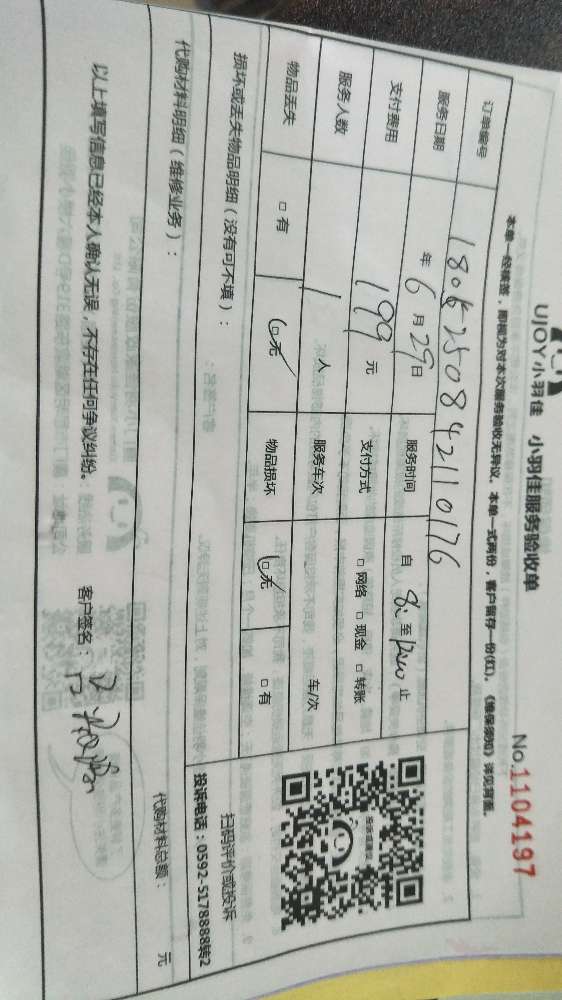 UJOY小羽佳 小羽佳服务验收单
No.1104197
本单一经核签，即视为对本次服务验收无异议。本单一式两份，客户留存一份(红)。《维保须知》详见背面。
订单编号 180625084211 0176
服务日期 年 6 月 29 日 服务时间 自 8: 至 止
支付费用 199 元 支付方式 □网络 □现金 □转账
服务人数 1 人 服务车次 车/次
物品丢失 □有 □无 物品损坏 □无 □有
扫码评价或投诉
投诉电话：0592-5178888转2
损坏或丢失物品明细（没有可不填）：
代购材料明细（维修业务）：
代购材料总额： 元
以上填写信息已经本人确认无误，不存在任何争议纠纷。 客户签名：